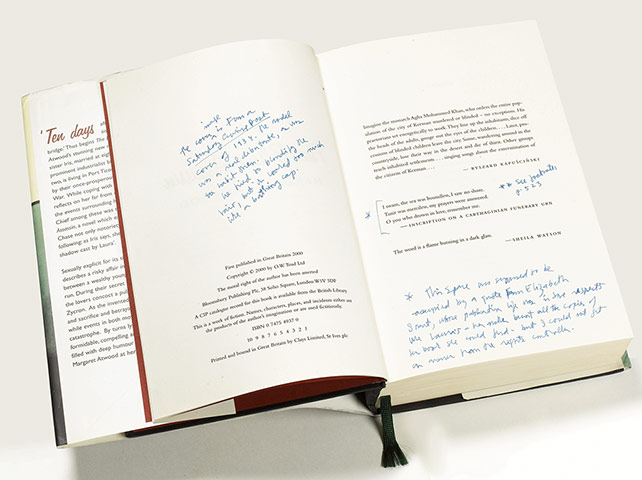 'Ten days
bridge.' Thus begins The
Atwood's stunning new
sister Iris, married at eigh
prominent industrialist b
two, is living in Port Tico
by their once-prosperous
War. While coping with
reflects on her far from
the events surrounding
Chief among these was
Assassin, a novel which e
Chase not only notoriety
following: as Iris says, she
shadow cast by Laura'.
Sexually explicit for its
describes a risky affair in
between a wealthy young
run. During their secret
the lovers concoct a pul
Zycron. As the invented
and sacrifice and betraya
while events in both mo
catastrophe. By turns ly
formidable, compelling a
filled with deep humour
Margaret Atwood at her
The cover is from a
Saturday Evening Post
cover of 1934. The model
was a real débutante, as was
the habit then.
He had to blondify the
hair, but it looked too much
like a bathing cap.
First published in Great Britain 2000
Copyright © 2000 by O.W. Toad Ltd
The moral right of the author has been asserted
Bloomsbury Publishing Plc, 38 Soho Square, London W1V 5DF
A CIP catalogue record for this book is available from the British Library
This is a work of fiction. Names, characters, places, and incidents either are
the products of the author's imagination or are used fictitiously.
ISBN 0 7475 4937 0
10 9 8 7 6 5 4 3 2 1
Printed and bound in Great Britain by Clays Limited, St Ives plc
Imagine the monarch Agha Mohammed Khan, who orders the entire pop-
ulation of the city of Kerman murdered or blinded – no exceptions. His
praetorians set energetically to work. They line up the inhabitants, slice off
the heads of the adults, gouge out the eyes of the children. . . . Later, pro-
cessions of blinded children leave the city. Some, wandering around in the
countryside, lose their way in the desert and die of thirst. Other groups
reach inhabited settlements . . . singing songs about the extermination of
the citizens of Kerman. . . .
– RYSZARD KAPUŚCIŃSKI
** see
p. 523
I swam, the sea was boundless, I saw no shore.
Tanit was merciless, my prayers were answered.
* O you who drown in love, remember me.
– INSCRIPTION ON A CARTHAGINIAN FUNERARY URN
The word is a flame burning in a dark glass.
– SHEILA WATSON
* This space was supposed to be
occupied by a quote from Elizabeth
Smart, whose publication history was in some respects
like Laura's – her mother burnt all the copies of
her book she could find – but I could not get
an answer from the rights controller.